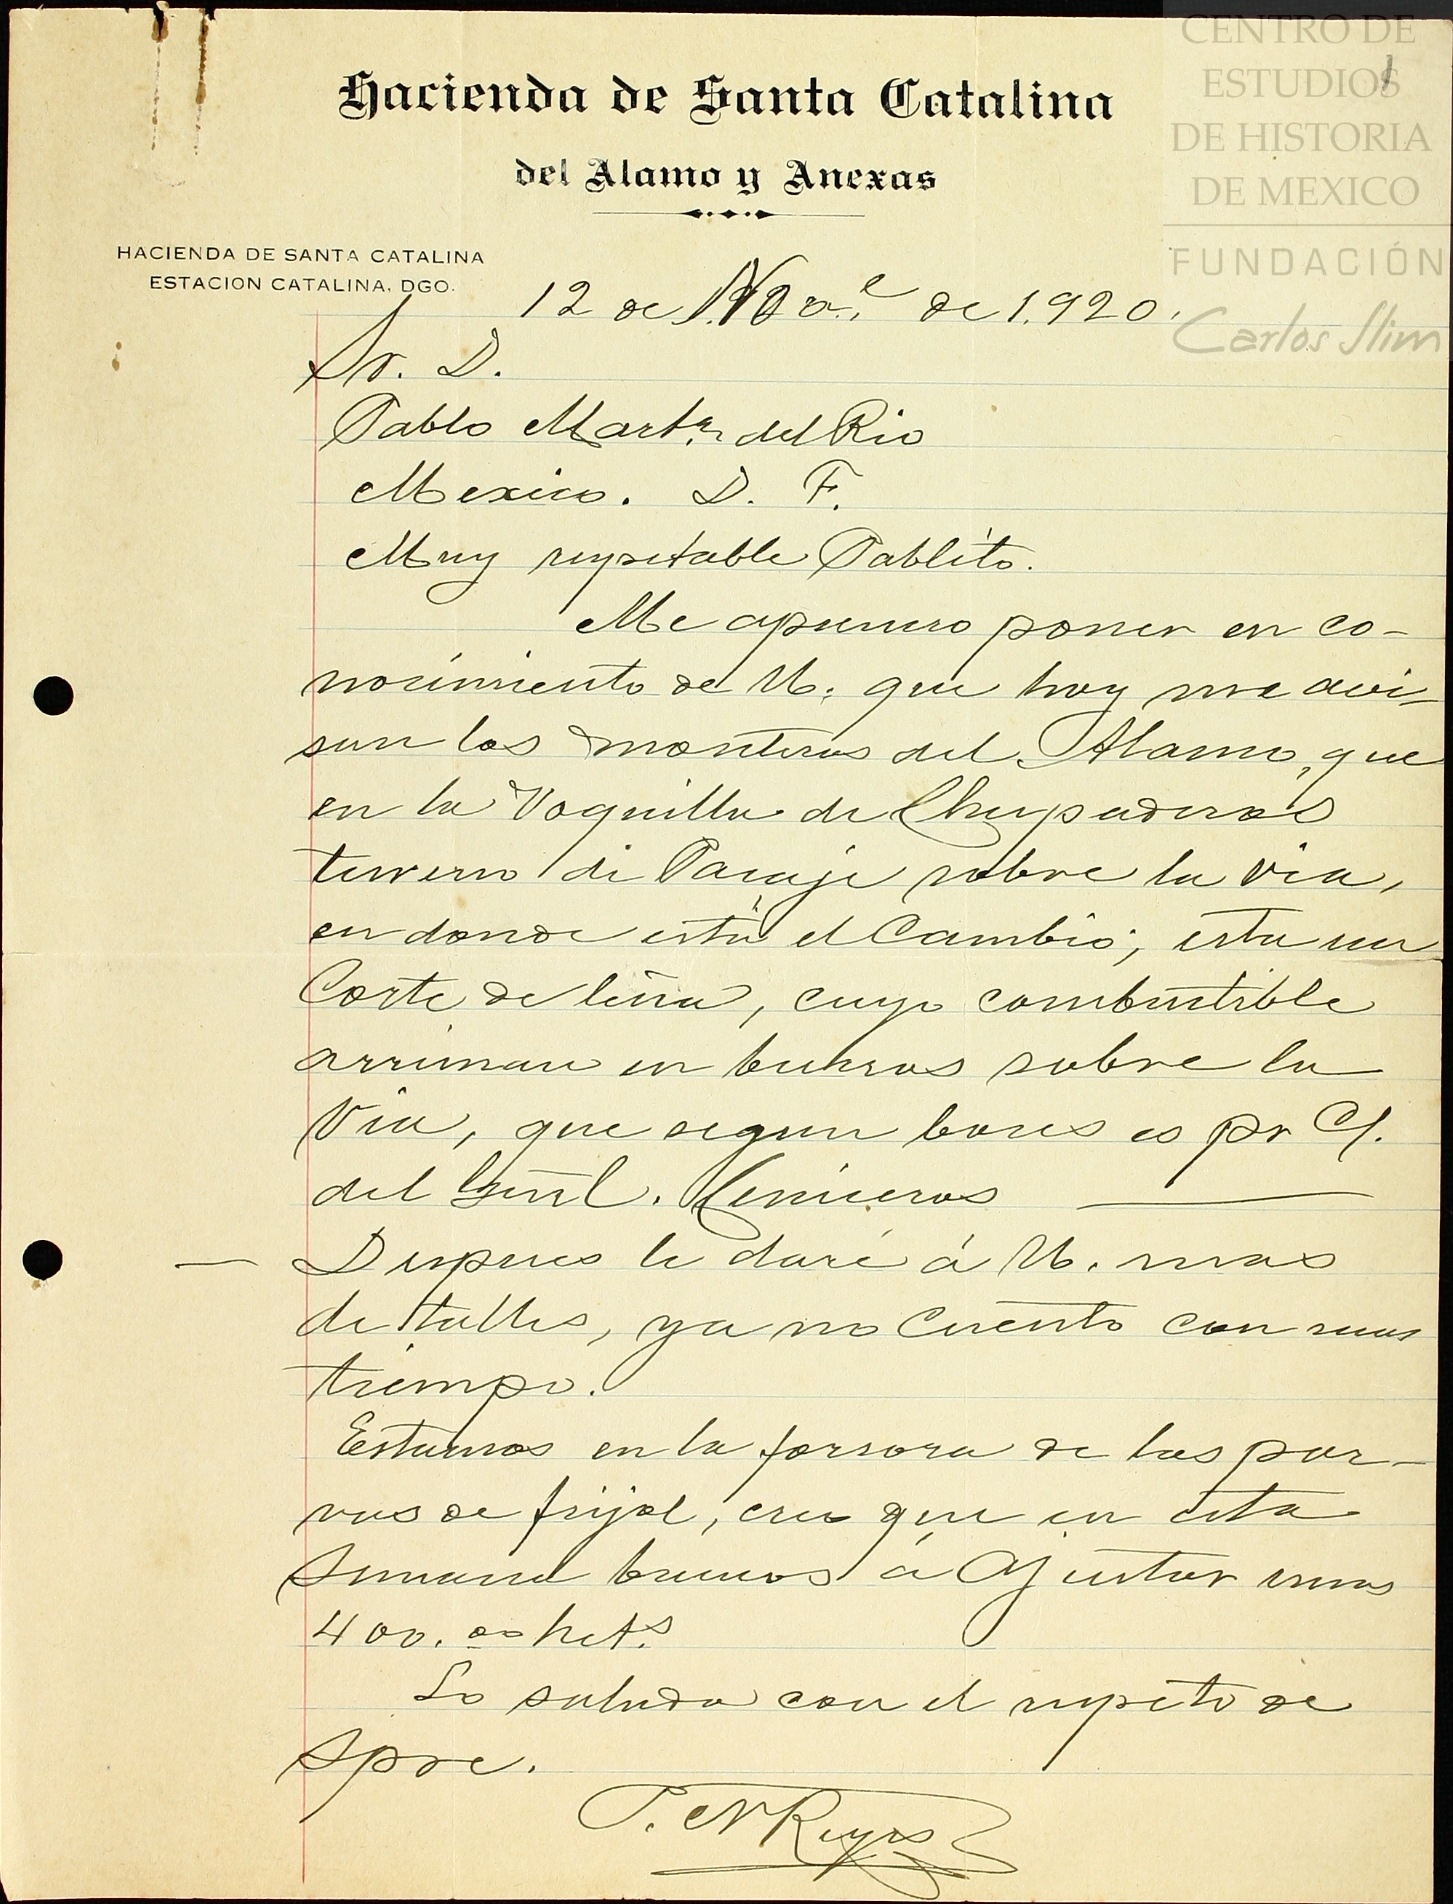 CENTRO DE
ESTUDIOS
DE HISTORIA
DE MEXICO
FUNDACIÓN
Carlos Slim
Hacienda de Santa Catalina
del Alamo y Anexas
HACIENDA DE SANTA CATALINA
ESTACION CATALINA, DGO.
12 de Nov.e de 1.920.
Sr. D.
Pablo Martz. del Rio
Mexico. D. F.
Muy respetable Pablito.
Me apresuro poner en co-
nocimiento de U. que hoy me avi-
san los monteros del Alamo, que
en la Boquilla de Chupaderos
terreno de Pasaje sobre la via,
en donde está el Cambio, esta un
Corte de leña, cuyo combustible
arriman en burros sobre la
Via, que segun boces es pr Cta.
del Genrl. Ceniceros
Despues le daré á U. mas
detalles, ya no cuento con mas
tiempo.
Estamos en la forsora de las par-
vas de frijol, creo que en esta
Semana bamos á Ajustar unos
400.00 hets.
Lo saluda con el respeto de
Spre.
P. N Reyes